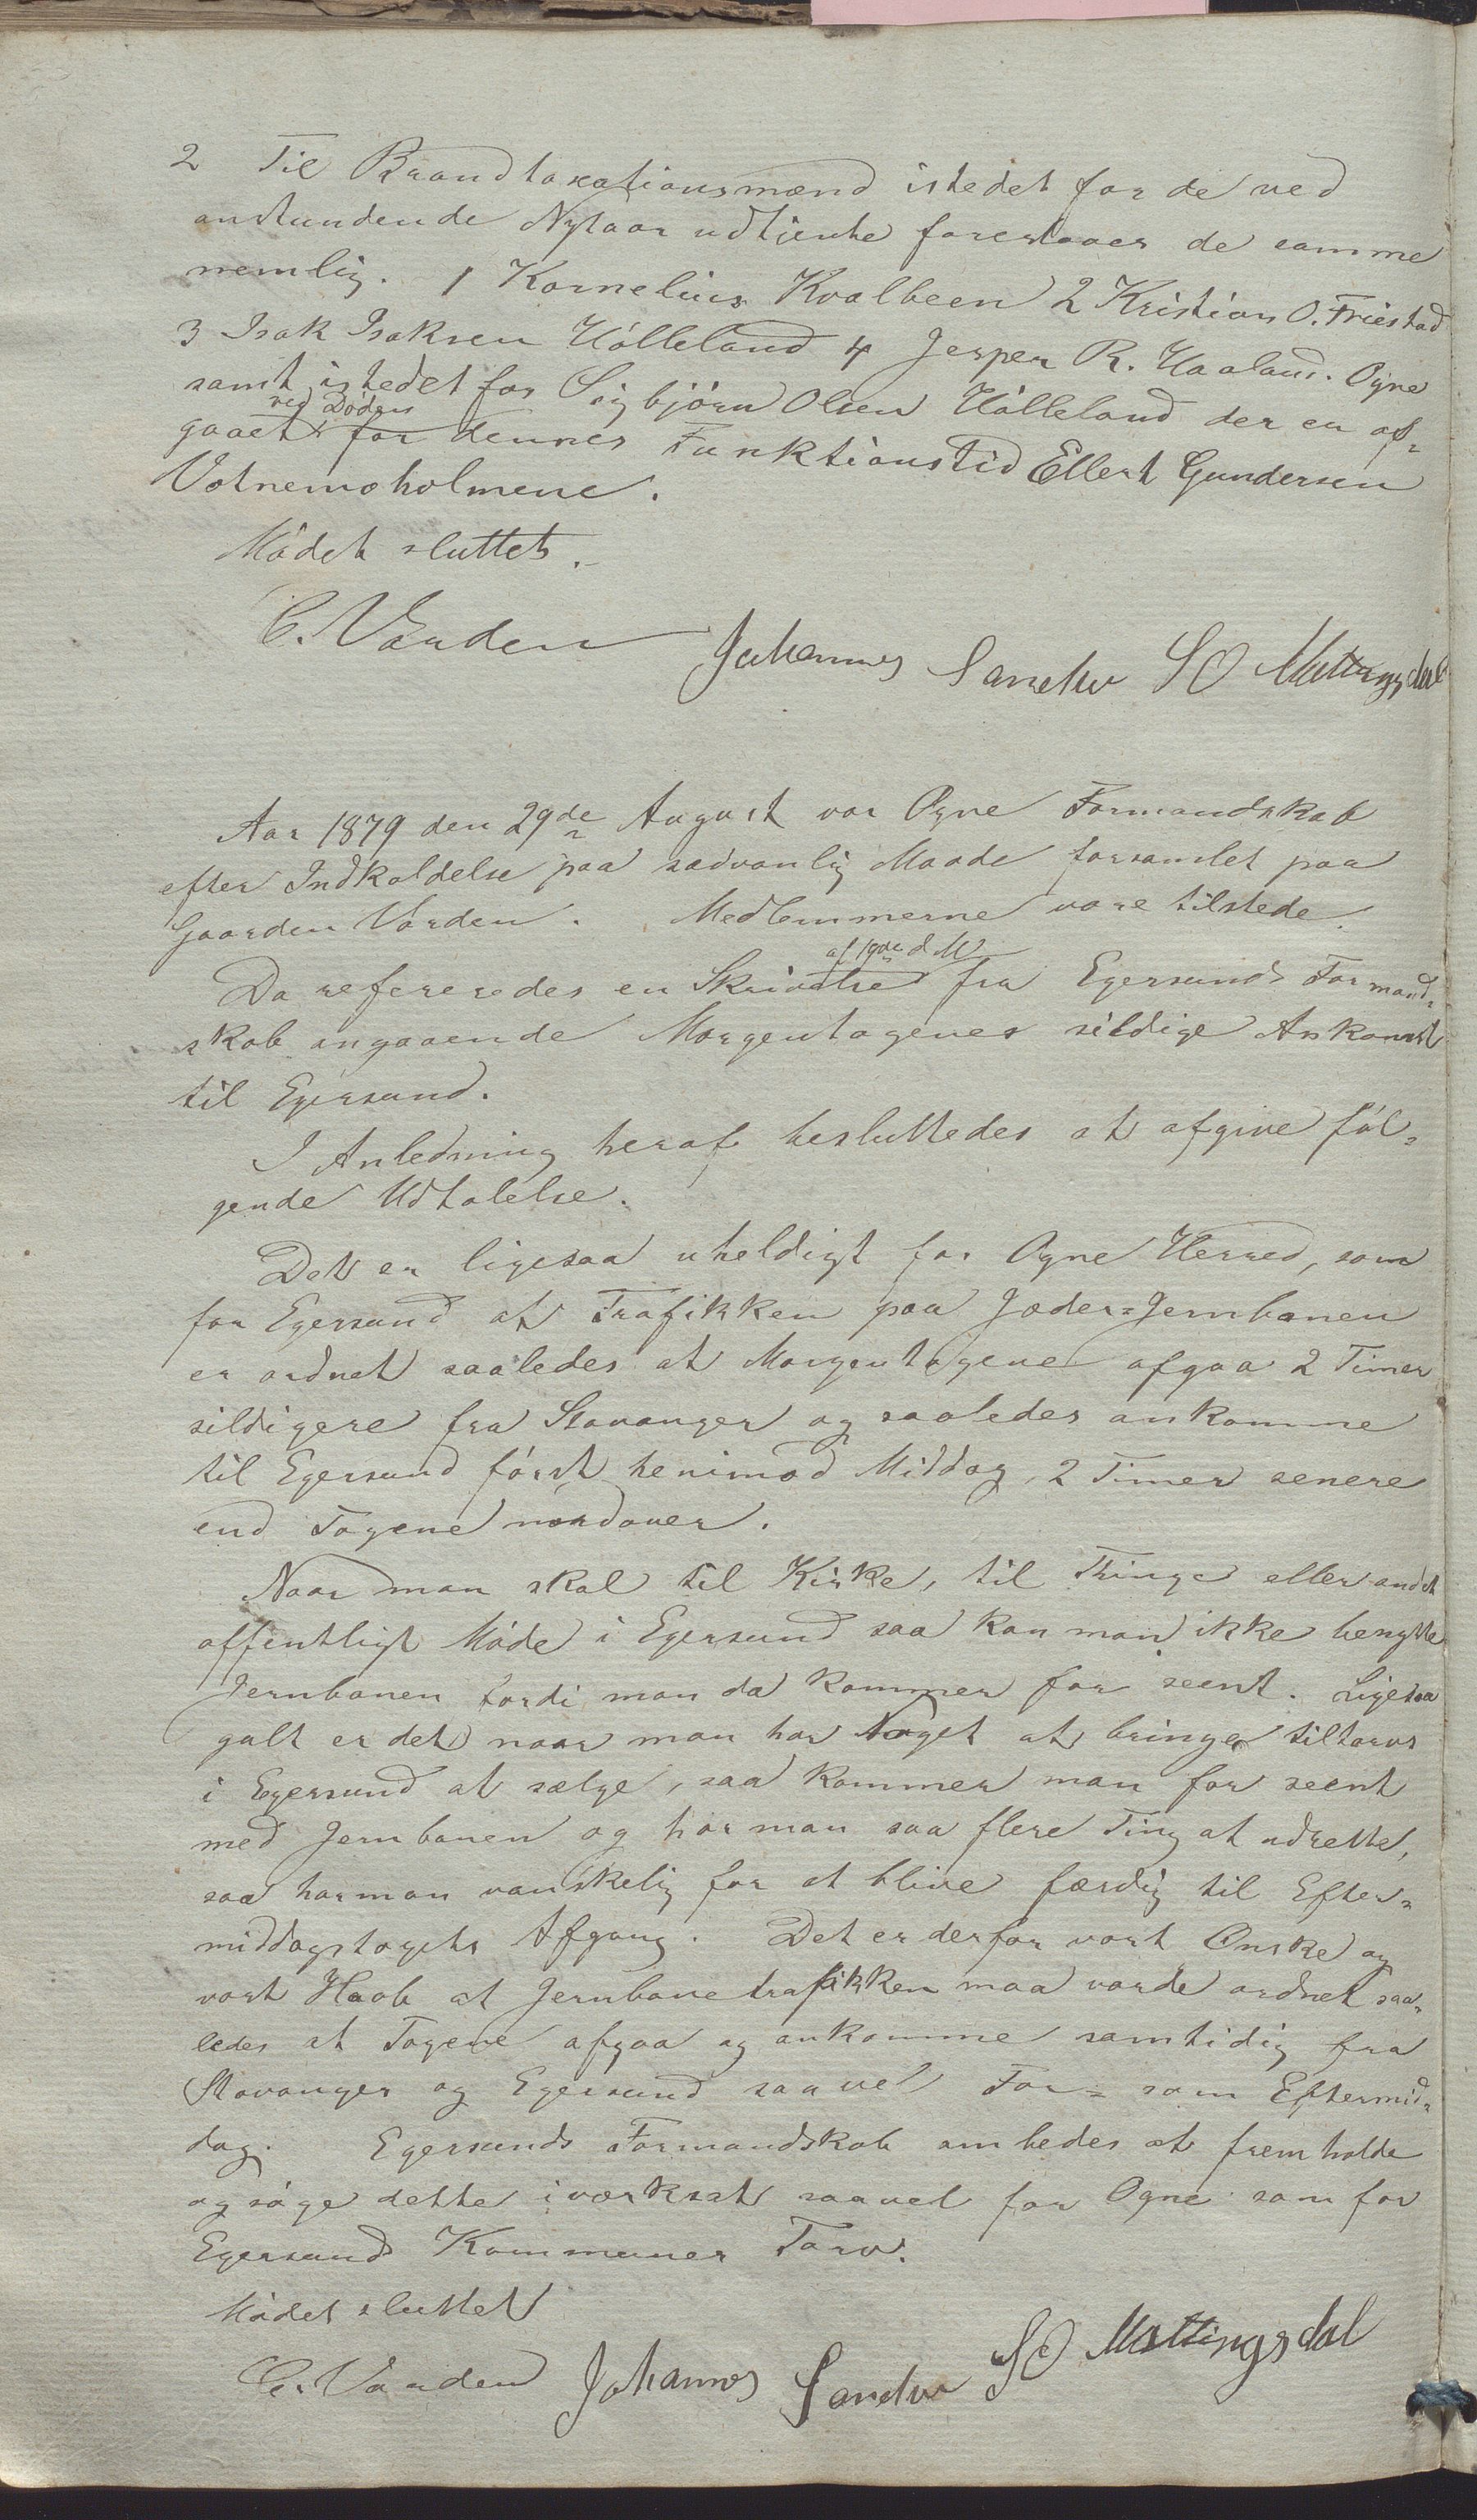 2 Til Brandtaxationsmænd istedet for de ved
anstundende Nytaar udtjente foreslaaes de samme
nemlig. 1 Kornelius Kvalbeen 2 Kristian O. Friestad
3 Isak Isaksen Hølleland 4 Jesper R. Haaland. Ogne
samt istedet for Sigbjørn Olsen Hølleland der er af-
ved Døden
gaaet for dennes Funktionstid Ellert Gundersen
Votnemoholmene.
Mødet sluttet.
C. Varden Johannes Sandve SO Mattingsdal
Aar 1879 den 29de August var Ogne Formandskab
efter Indkaldelse paa sædvanlig Maade forsamlet paa
Gaarden Varden. Medlemmerne vare tilstede.
af 19de d M
Da refereredes en Skrivelse fra Egersunds Formand-
skab angaaende Morgentogenes sildige Ankomst
til Egersund.
I Anledning heraf besluttedes at afgive føl-
gende Udtalelse.
Det er ligesaa uheldigt for Ogne Herred, som
for Egersund at Trafikken paa Jæder-Jernbanen
er ordnet saaledes at Morgentogene afgaa 2 Timer
sildigere fra Stavanger og saaledes ankomme
til Egersund først henimod Middag, 2 Timer senere
end Togene nordover.
Naar man skal til Kirke, til Thinge eller andet
offentligt Møde i Egersund saa kan man ikke benytte
Jernbanen fordi man da kommer for seent. Ligesaa
galt er det naar man har Noget at bringe tiltorvs
i Egersund at sælge, saa kommer man for seent
med Jernbanen og har man saa flere Ting at udrette,
saa har man vanskelig for at blive færdig til Efter-
middagstogets Afgang. Det er derfor vort Ønske og
vort Haab at Jernbanetrafikken maa vorde ordnet saa-
ledes at Togene afgaa og ankomme samtidig fra
Stavanger og Egersund saavel For- som Eftermid-
dag. Egersunds Formandskab ombedes at fremholde
og søge dette iværksat saavel for Ogne som for
Egersund Kommuner Tarv.
Mødet sluttet
C. Varden Johannes Sandve SO Mattingsdal